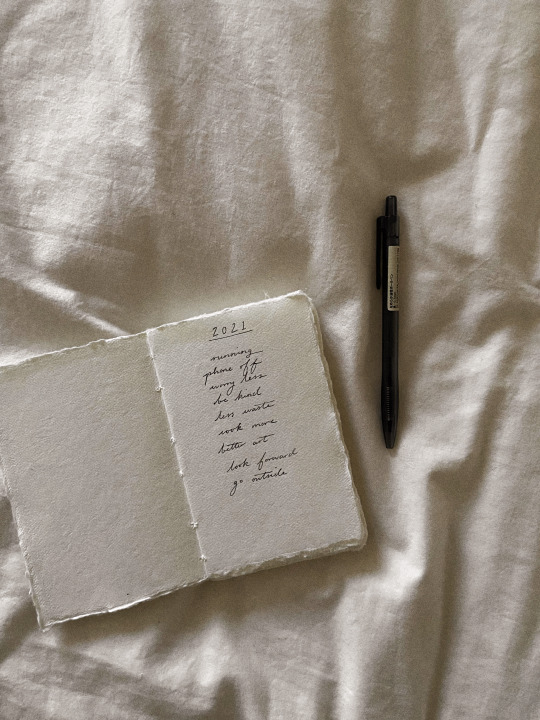 2021
running
phone off
worry less
be kind
less waste
cook more
better art
look forward
go outside